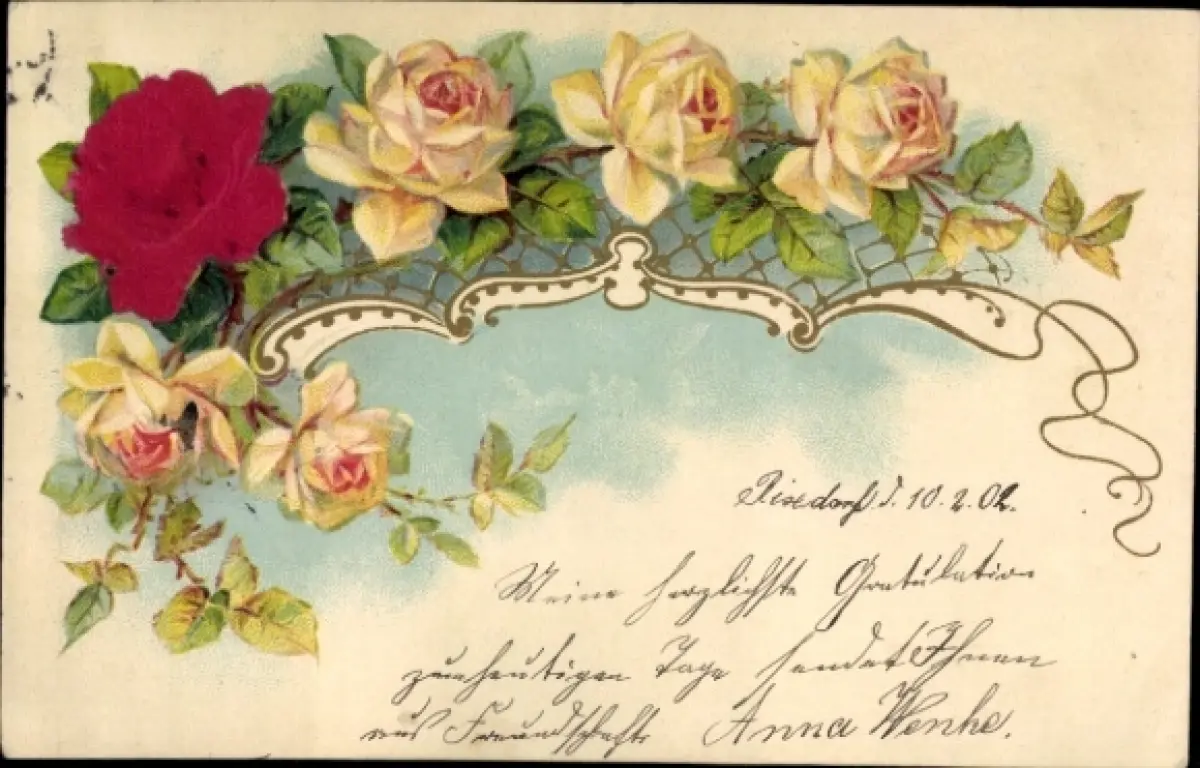 Risdorf, d. 10.2.02.
Meine herzlichste Gratulation
zum heutigen Tage sendet Ihnen
aus Freundschaft Anna Wenke.